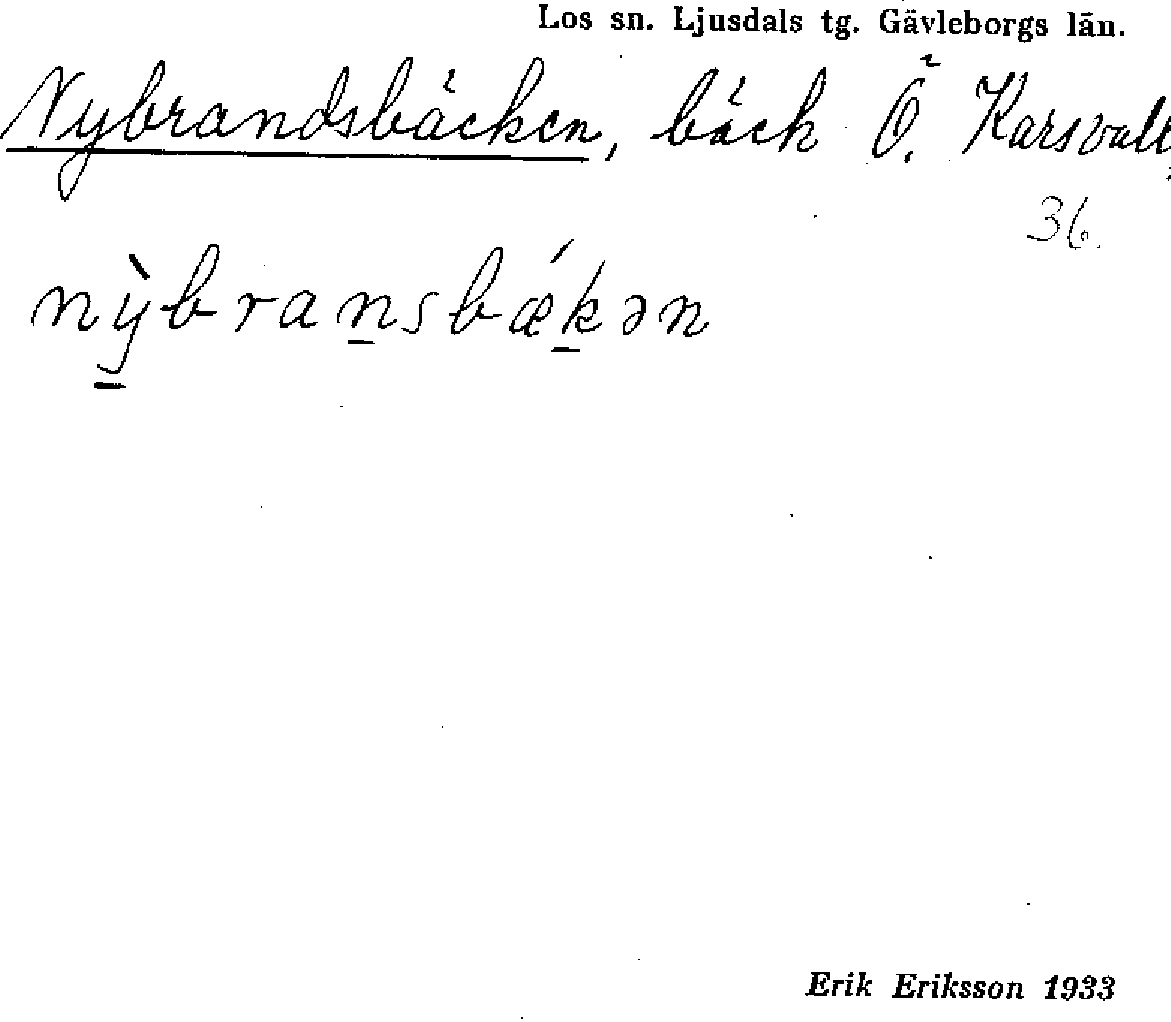 Los sn. Ljusdals tg. Gävleborgs län.
Nybrandsbäcken, bäck Ö. Karsvall
36.
nỳbransbǽkən
Erik Eriksson 1933